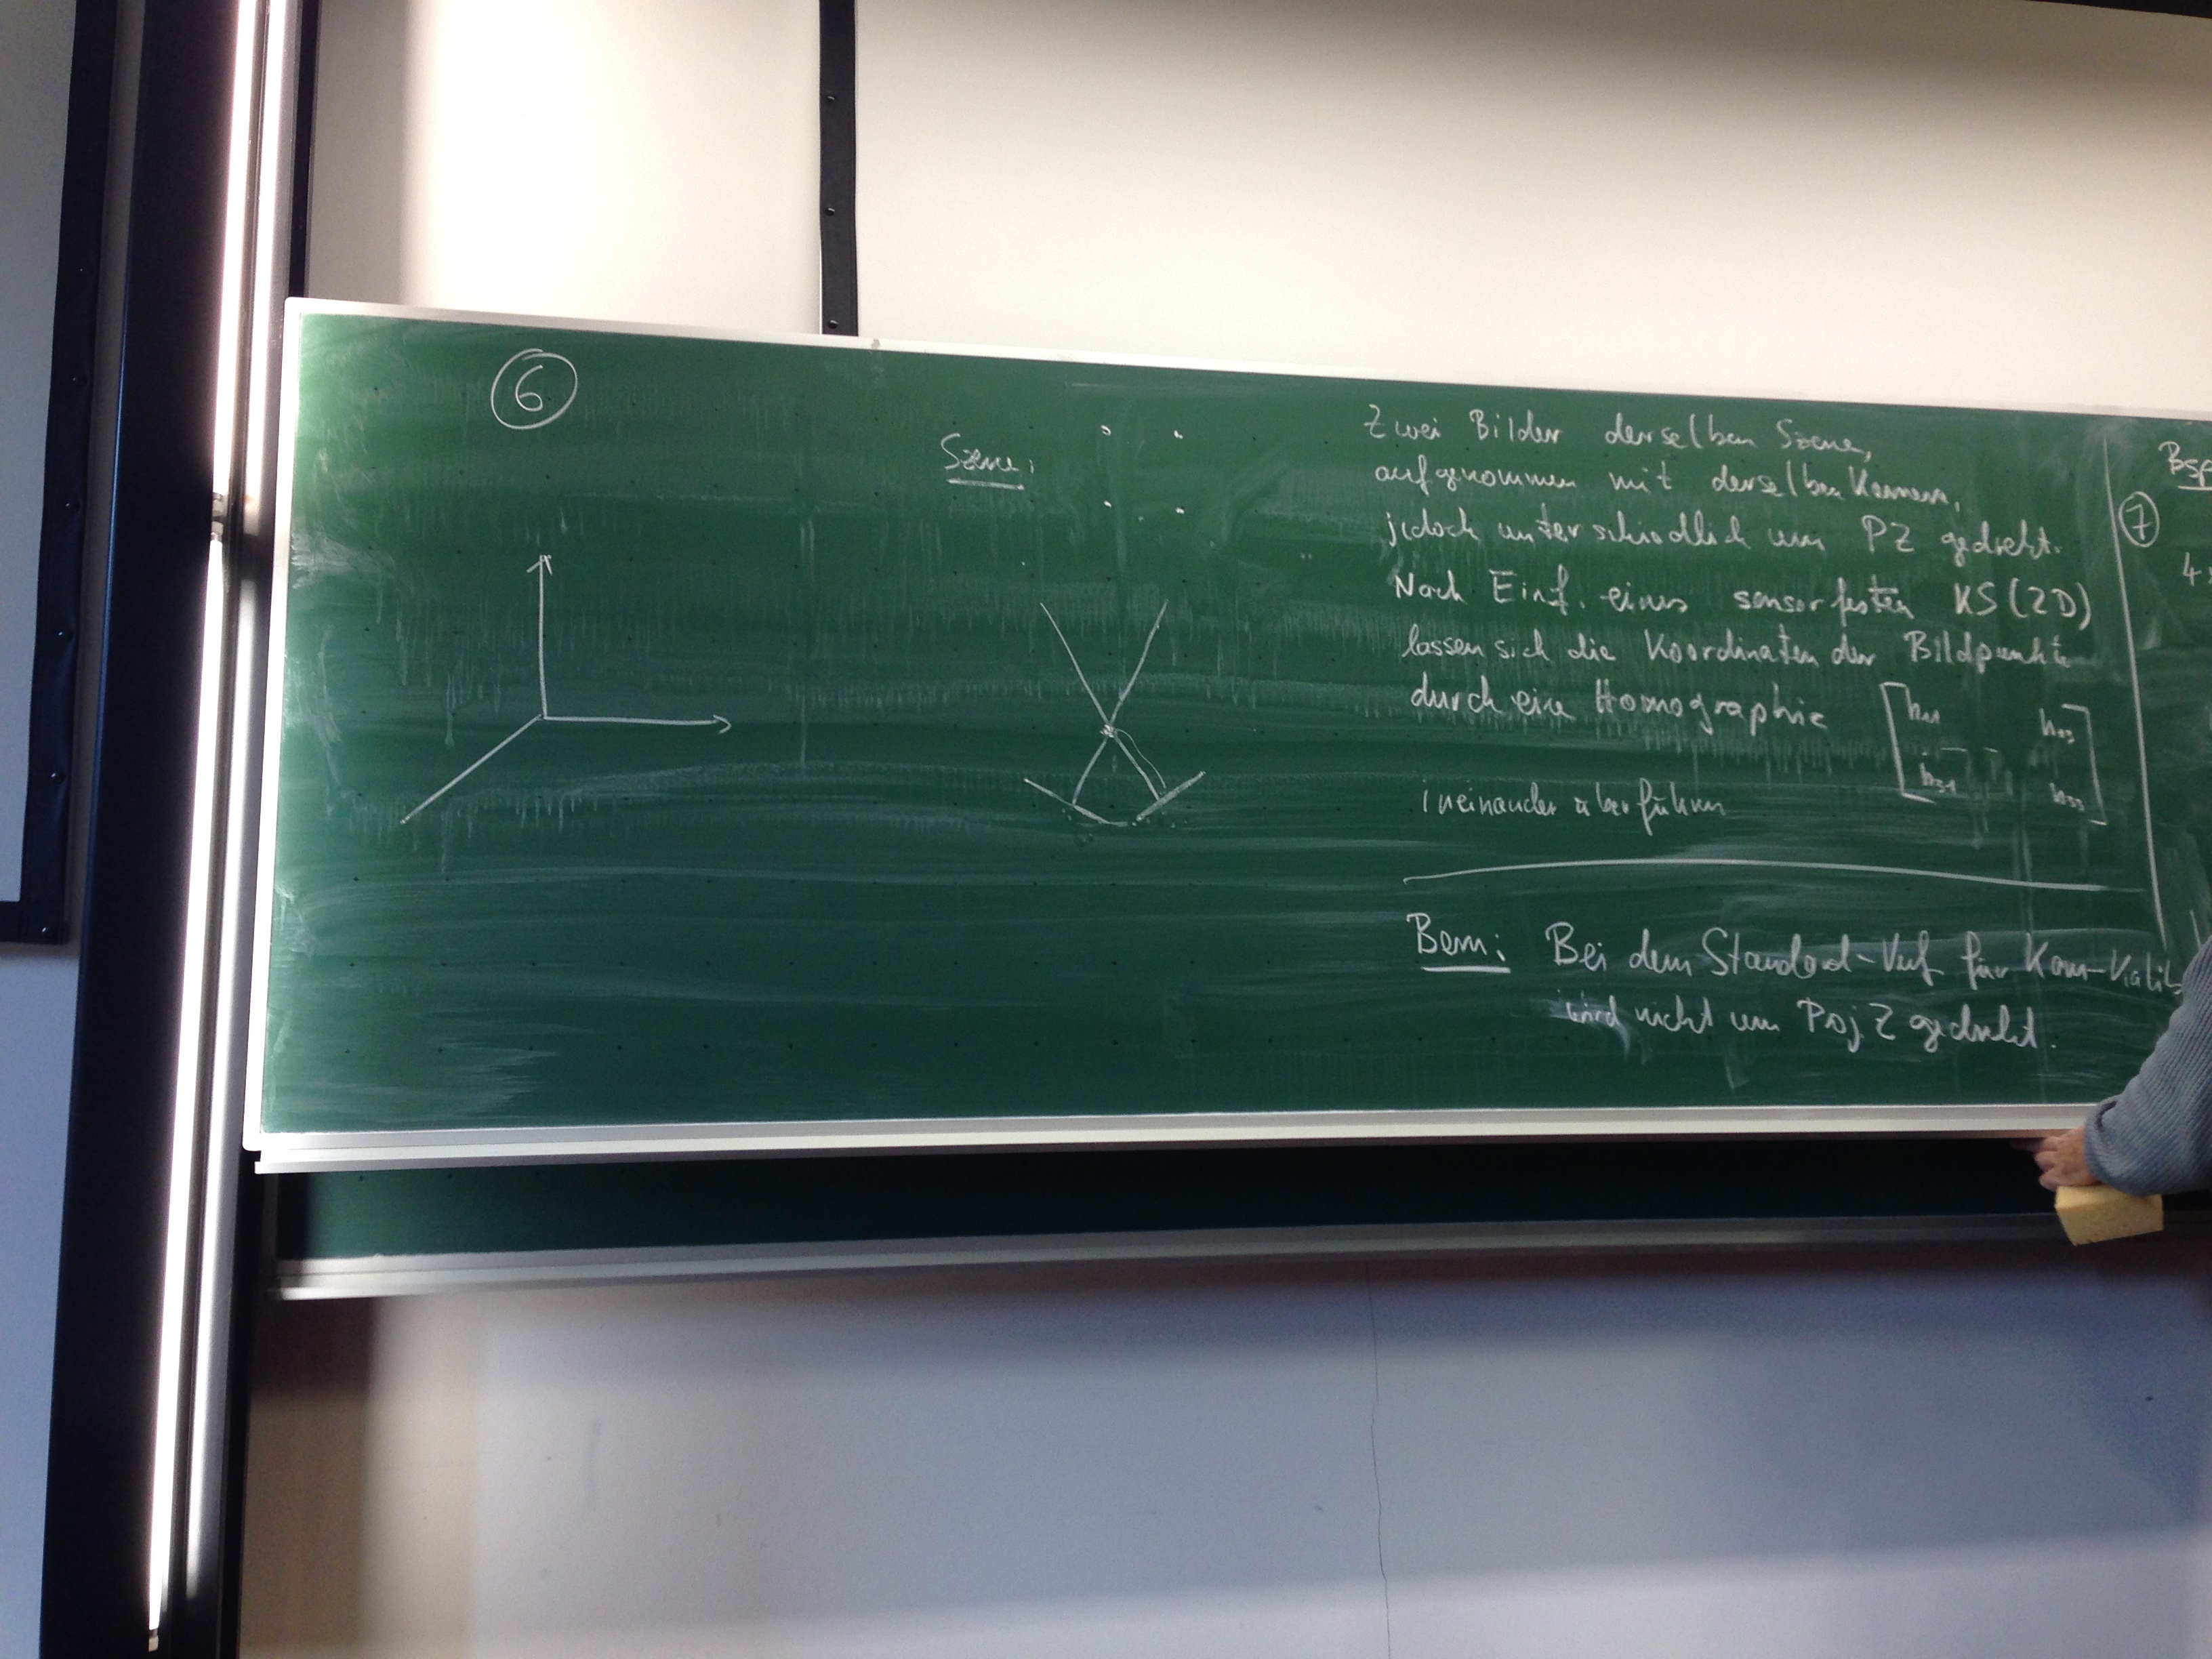 6
Szene:
Zwei Bilder derselben Szene,
aufgenommen mit derselben Kamera,
jedoch unterschiedlich um PZ gedreht.
Nach Einf. eines sensorfesten KS (2D)
lassen sich die Koordinaten der Bildpunkte
durch eine Homographie
h11 h13
h31 h33
ineinander überführen
Bem: Bei dem Standard-Verf für Kam-Kalib
wird nicht um Proj. Z gedreht.
Bsp
7
4